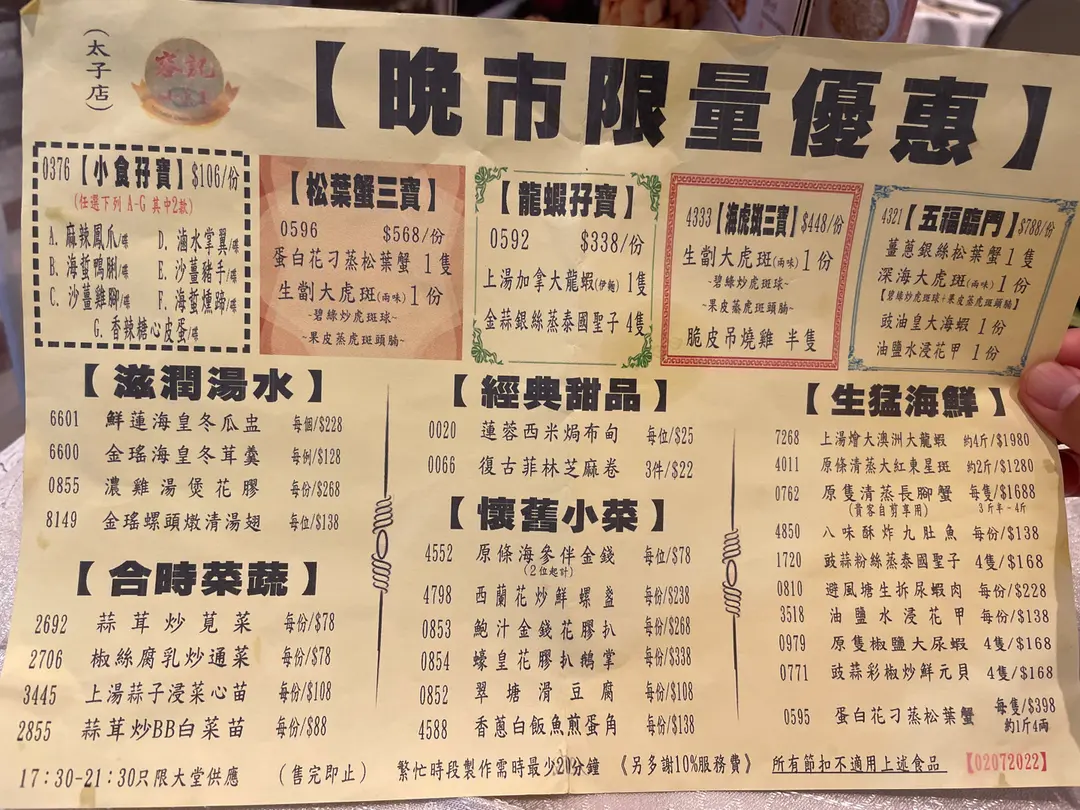 (太子店)
容記
【晚市限量優惠】
0376【小食孖寶】$106/份
(任選下列 A-G 其中2款)
A. 麻辣鳳爪/碟
B. 海蜇鴨脷/碟
C. 沙薑雞腳/碟
D. 滷水掌翼/碟
E. 沙薑豬手/碟
F. 海蜇燻蹄/碟
G. 香辣糖心皮蛋/碟
【松葉蟹三寶】
0596 $568/份
蛋白花刁蒸松葉蟹 1隻
生劏大虎斑(兩味)1份
~碧綠炒虎斑球~
~果皮蒸虎斑頭腩~
【龍蝦孖寶】
0592 $338/份
上湯加拿大龍蝦(伊麵)1隻
金蒜銀絲蒸泰國聖子 4隻
4333【海虎斑三寶】$448/份
生劏大虎斑(兩味)1份
~碧綠炒虎斑球~
~果皮蒸虎斑頭腩~
脆皮吊燒雞 半隻
4321【五福臨門】$788/份
薑蔥銀絲松葉蟹 1隻
深海大虎斑(兩味)1份
【碧綠炒虎斑球+果皮蒸虎斑頭腩】
豉油皇大海蝦 1份
油鹽水浸花甲 1份
【滋潤湯水】
6601 鮮蓮海皇冬瓜盅 每個/$228
6600 金瑤海皇冬茸羹 每例/$128
0855 濃雞湯煲花膠 每份/$268
8149 金瑤螺頭燉清湯翅 每位/$138
【合時菜蔬】
2692 蒜茸炒莧菜 每份/$78
2706 椒絲腐乳炒通菜 每份/$78
3445 上湯蒜子浸菜心苗 每份/$108
2855 蒜茸炒BB白菜苗 每份/$88
【經典甜品】
0020 蓮蓉西米焗布甸 每位/$25
0066 復古菲林芝麻卷 3件/$22
【懷舊小菜】
4552 原條海參伴金錢 每位/$78
(2位起計)
4798 西蘭花炒鮮螺盞 每份/$238
0853 鮑汁金錢花膠扒 每份/$268
0854 蠔皇花膠扒鵝掌 每份/$338
0852 翠塘滑豆腐 每份/$108
4588 香蔥白飯魚煎蛋角 每份/$138
【生猛海鮮】
7268 上湯燴大澳洲大龍蝦 約4斤/$1980
4011 原條清蒸大紅東星斑 約2斤/$1280
0762 原隻清蒸長腳蟹 每隻/$1688
(貴客自剪享用) 3斤半~4斤
4850 八味酥炸九肚魚 每份/$138
1720 豉蒜粉絲蒸泰國聖子 4隻/$168
0810 避風塘生拆尿蝦肉 每份/$228
3518 油鹽水浸花甲 每份/$138
0979 原隻椒鹽大尿蝦 4隻/$168
0771 豉蒜彩椒炒鮮元貝 4隻/$168
0595 蛋白花刁蒸松葉蟹 每隻/$398
約1斤4兩
17:30-21:30只限大堂供應 (售完即止) 繁忙時段製作需時最少20分鐘 《另多謝10%服務費》 所有節扣不適用上述食品 【02072022】